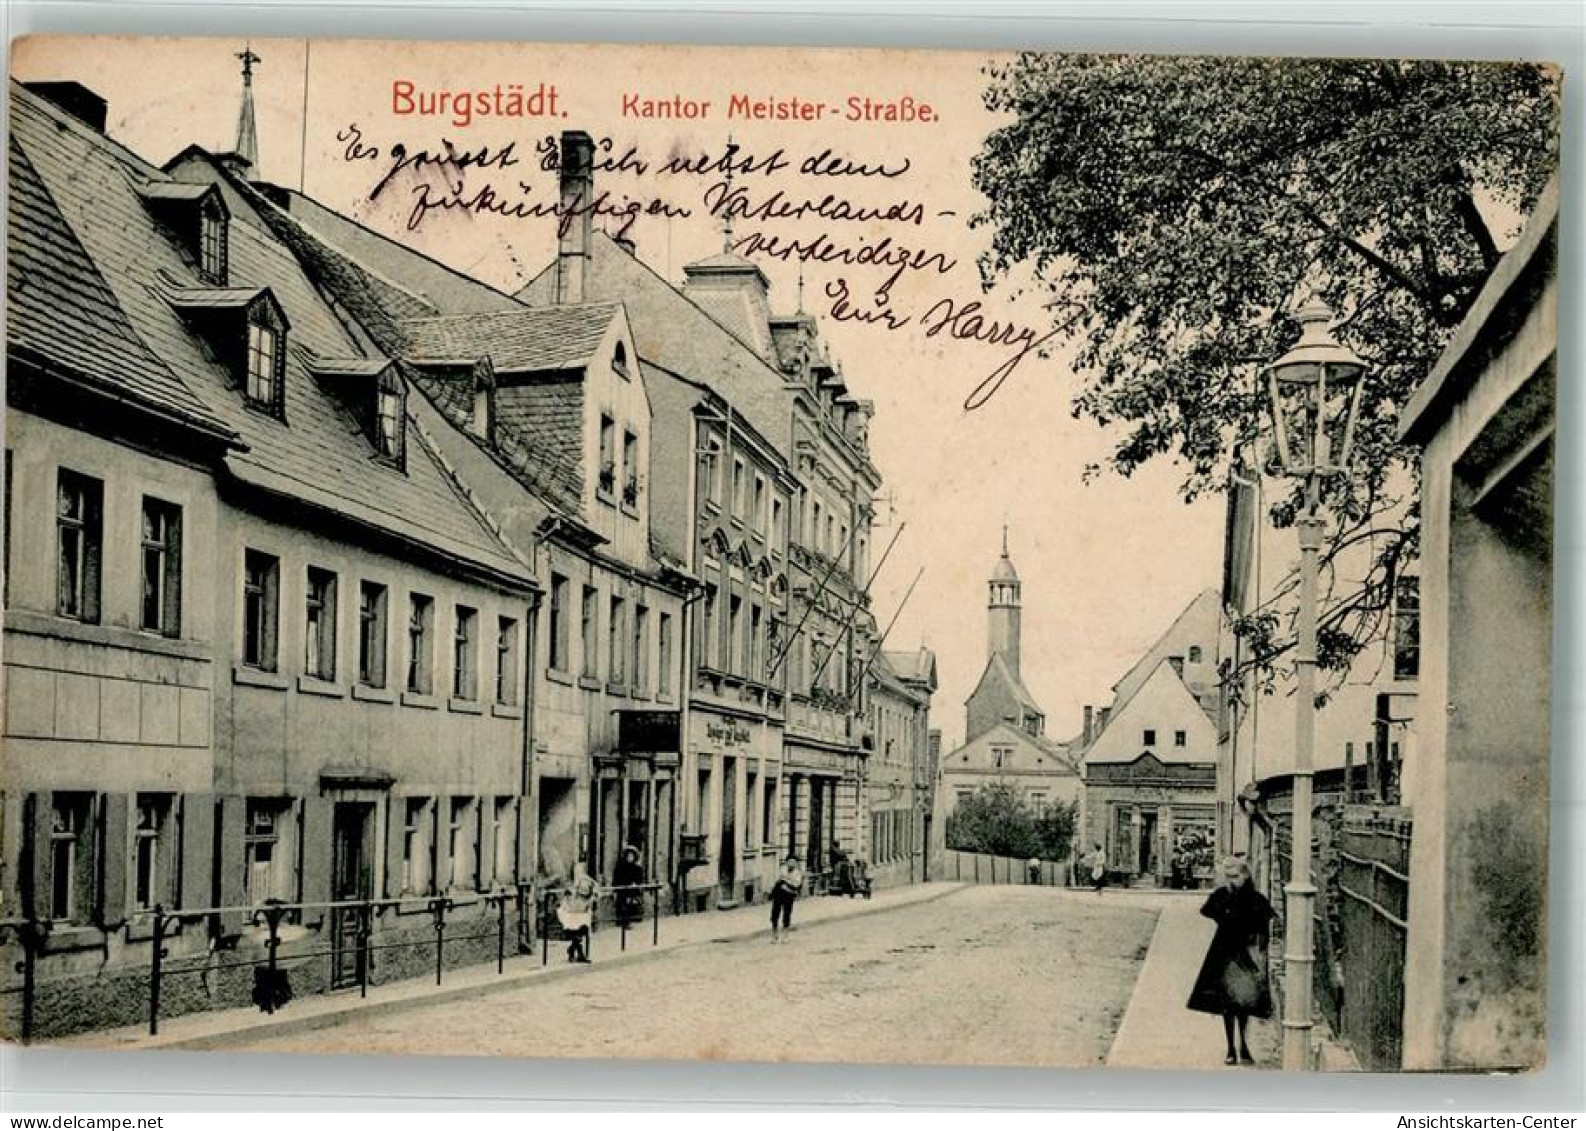 Burgstädt. Kantor Meister-Straße.
Es grüsst Euch nebst dem
zukünftigen Vaterlands-
verteidiger
Eur Harry
www.delcampe.net
Ansichtskarten-Center